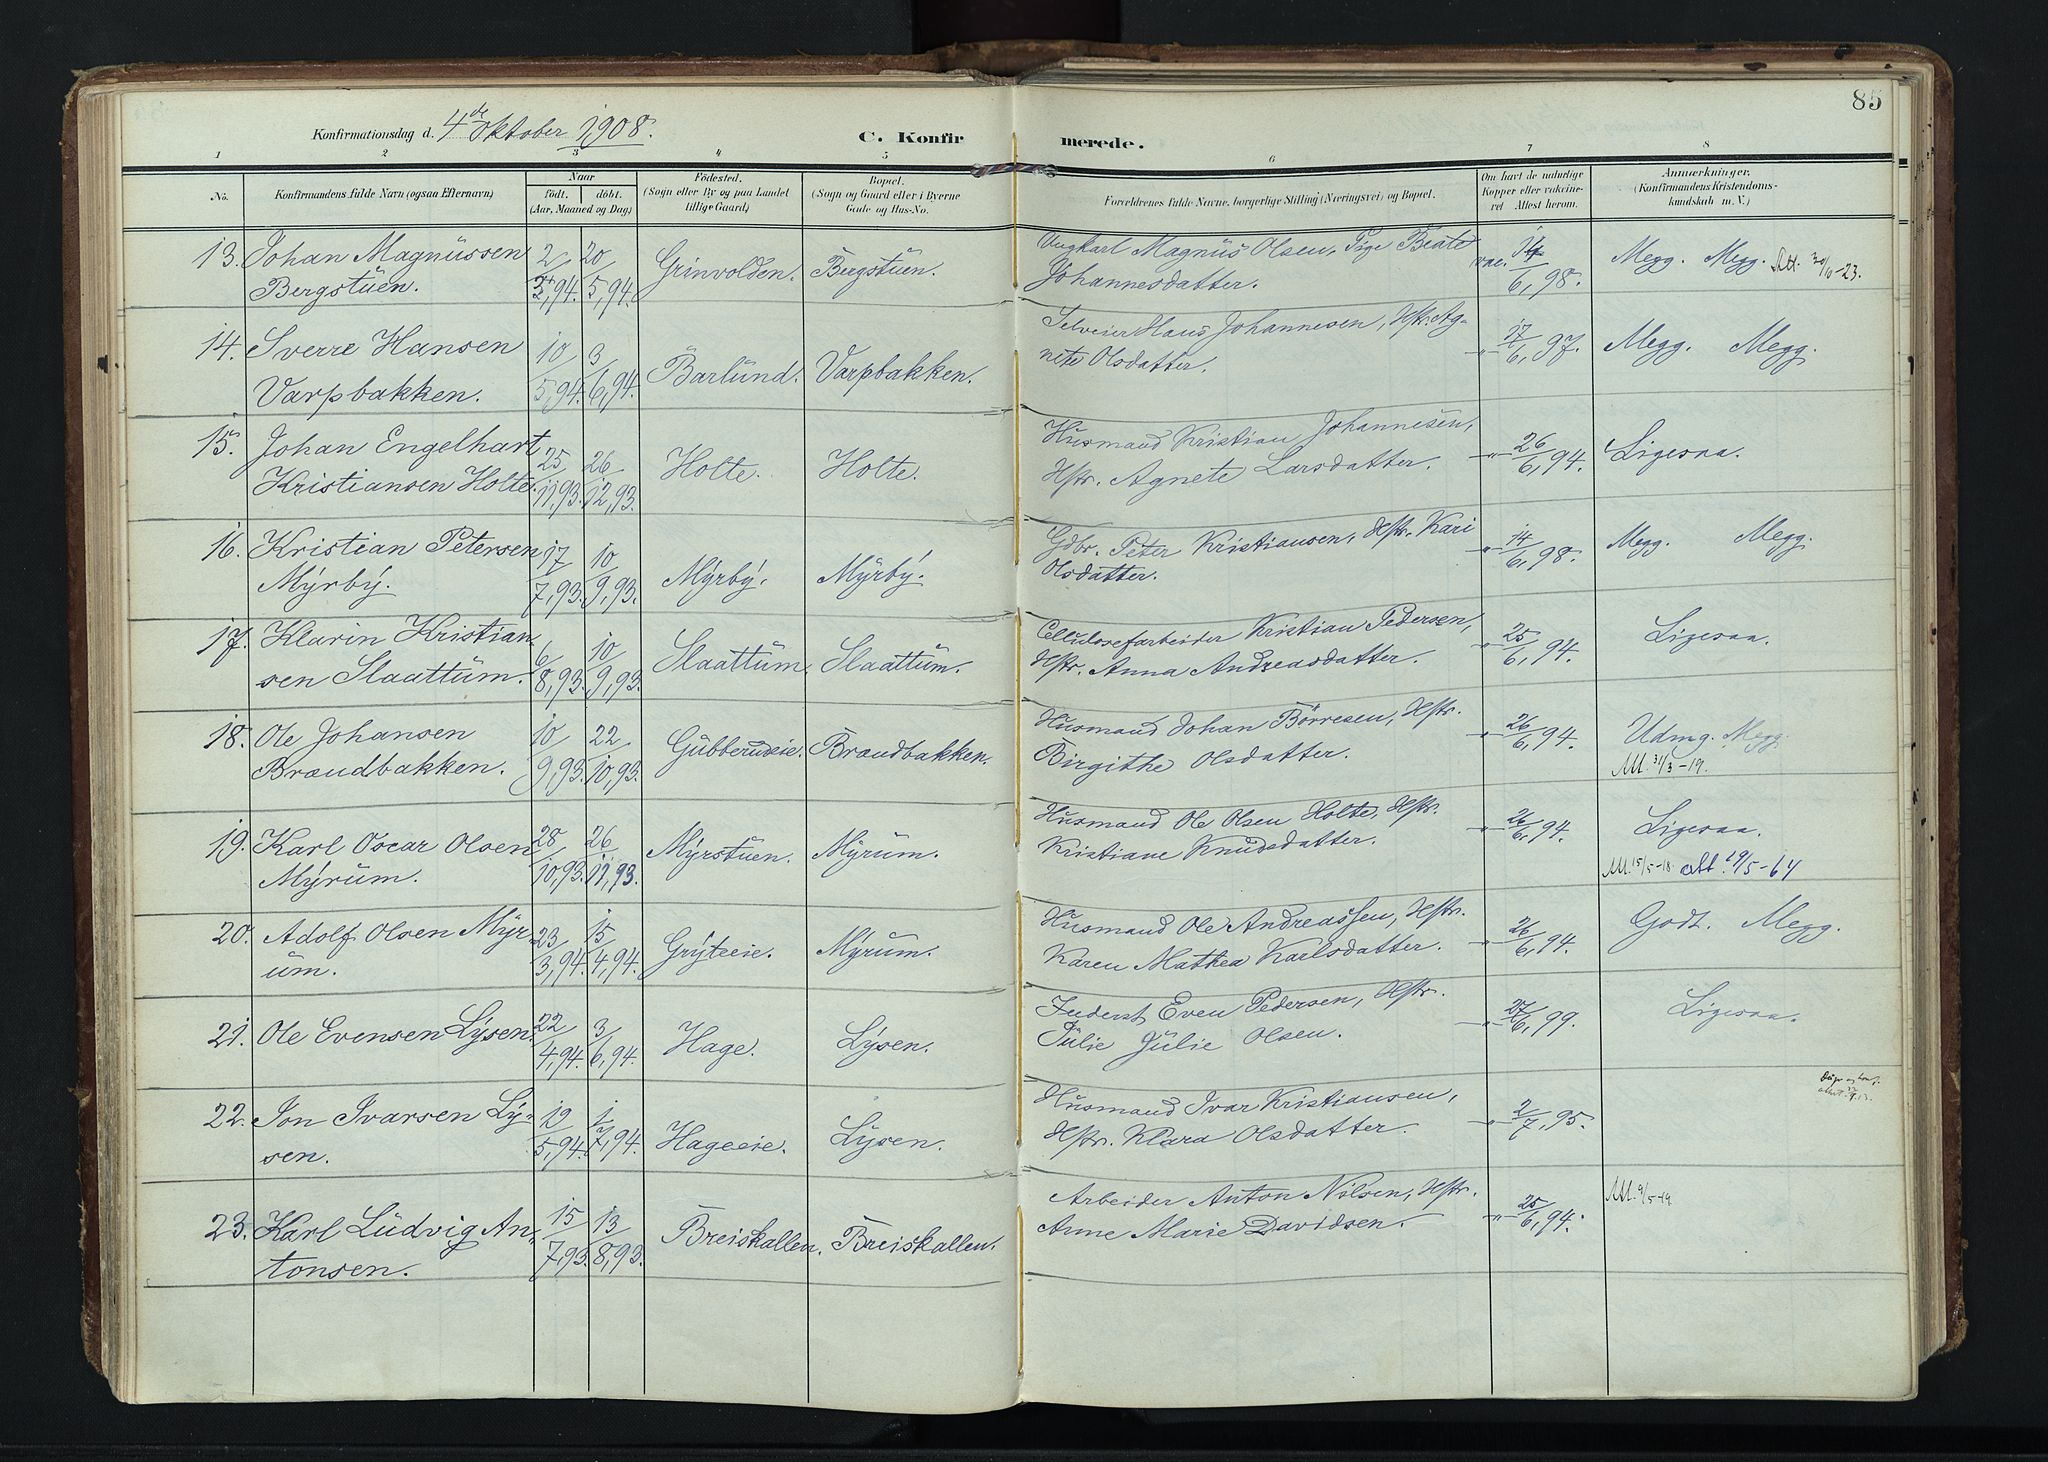 85
Konfirmationsdag d. 4de Oktober 1908.
C. Konfirmerede.
1 2 3 4 5 6 7 8
No. Konfirmandens fulde Navn (ogsaa Efternavn) Naar født. døbt. (Aar, Maaned og Dag) Fødested. (Sogn eller By og paa Landet tillige Gaard) Bopæl. (Sogn og Gaard eller i Byerne Gade og Hus-No. Forældrenes fulde Navne, borgerlige Stilling (Næringsvei) og Bopæl. Om havt de naturlige Kopper eller vakcineret. Attest herom. Anmærkninger. (Konfirmandens Kristendomskundskab m. V.)
13. Johan Magnussen 2 20 Grinvolden. Bergstuen. Ungkarl Magnus Olsen, Pige Beate vac. 14 Megg. Megg. Att. 30/10-23.
Bergstuen. 3,94. 5,94. Johannesdatter. 6,98.
14. Sverre Hansen 10 3 Barlund. Varpbakken. Selveier Hans Johannesen, Hstr. Ag- 17 Megg. Megg.
Varpbakken. 5,94. 6,94. nete Olsdatter. -"- 6,97.
15. Johan Engelhart 25 26 Holte. Holte. Husmand Kristian Johannesen, 26 Ligesaa.
Kristiansen Holte. 11,93. 12,93. Hstr. Agnete Larsdatter. -"- 6,94.
16. Kristian Petersen 17 10 Myrby. Myrby. Gdbr. Peter Kristiansen, Hstr. Kari 14 Megg. Megg.
Myrby. 7,93. 9,93. Olsdatter. " 6,98.
17. Klarin Kristian- 6 10 Slaattum. Slaattum. Cellulosefarbeider Kristian Pedersen, 25 Ligesaa.
sen Slaattum. 8,93. 9,93. Hstr. Anna Andreasdatter. -"- 6,94.
18. Ole Johansen 10 22 Gubberudeie. Brandbakken. Husmand Johan Börresen, Hstr. 26 Udmg. Megg.
Brandbakken. 9,93. 10,93. Birgithe Olsdatter. -"- 6,94. Att. 31/3-19.
19. Karl Oscar Olsen 28 26 Myrstuen. Myrum. Husmand Ole Olsen Holte, Hstr. 26 Ligesaa.
Myrum. 10,93. 11,93. Kristiane Knudsdatter. -"- 6,94. Att. 15/5-18. Att. 29/5-64
20. Adolf Olsen Myr- 23 15 Gryteeie. Myrum. Husmand Ole Andreassen, Hstr. 26 Godt. Megg.
um. 3,94. 4,94. Karen Mathea Karlsdatter. -"- 6,94.
21. Ole Evensen Lysen. 22 3 Hage. Lysen. Inderst Even Pedersen, Hstr. 27 Ligesaa.
4,94. 6,94. Julie Julie Olsen. -"- 6,99.
22. Jon Ivarsen Ly- 19 1 Hageeie. Lysen. Husmand Ivar Kristiansen, 2
sen. 5,94. 7,94. Hstr. Klara Olsdatter. -"- 7,95.
23. Karl Ludvig An- 15 13 Breiskallen. Breiskallen. Arbeider Anton Nilsen, Hstr. 25 Att. 9/5-19.
tonsen. 7,93. 8,93. Anne Marie Davidsen. -"- 6,94.